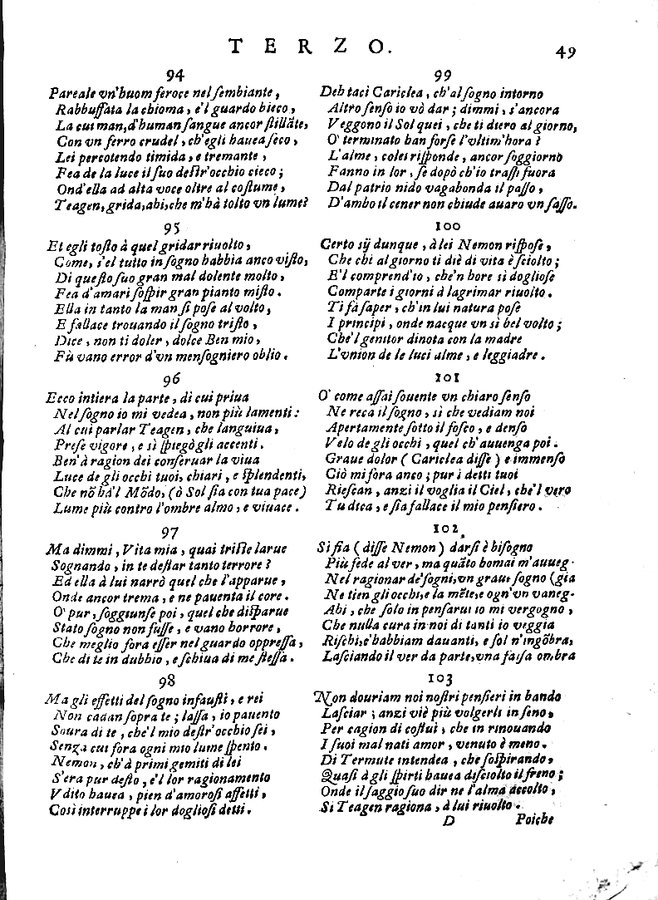 TERZO.
49
94
Pareale vn'huom feroce nel sembiante,
Rabbuffata la chioma, e'l guardo bieco,
La cui man, d'human sangue ancor stillāte,
Con vn ferro crudel, ch'egli hauea seco,
Lei percotendo timida, e tremante,
Fea de la luce il suo destr'occhio cieco;
Ond'ella ad alta voce oltre al costume,
Teagen, grida, ahi, che m'hà tolto vn lume?
95
Et egli tosto à quel gridar riuolto,
Come, s'el tutto in sogno habbia anco visto,
Di questo suo gran mal dolente molto,
Fea d'amari sospir gran pianto misto.
Ella in tanto la man si pose al volto,
E fallace trouando il sogno tristo,
Dice, non ti doler, dolce Ben mio,
Fù vano error d'vn mensogniero oblio.
96
Ecco intiera la parte, di cui priua
Nel sogno io mi vedea, non più lamenti:
Al cui parlar Teagen, che languiua,
Prese vigore, e sì spiegò gli accenti.
Ben'à ragion dei conseruar la viua
Luce de gli occhi tuoi, chiari, e splendenti,
Che nō hà'l Mōdo, (ò Sol sia con tua pace)
Lume più contro l'ombre almo, e viuace.
97
Ma dimmi, Vita mia, quai triste larue
Sognando, in te destar tanto terrore?
Ed ella à lui narrò quel che l'apparue,
Onde ancor trema, e ne pauenta il core.
O' pur, soggiunse poi, quel che disparue
Stato sogno non fusse, e vano horrore,
Che meglio fora esser nel guardo oppressa,
Che di te in dubbio, e schiua di me stessa.
98
Ma gli effetti del sogno infausti, e rei
Non cadan sopra te; lassa, io pauento
Soura di te, che'l mio destr'occhio sei,
Senza cui fora ogni mio lume spento.
Nemon, ch'à primi gemiti di lei
S'era pur desto, e'l lor ragionamento
Vdito hauea, pien d'amorosi affetti,
Così interruppe i lor dogliosi detti.
99
Deh taci Cariclea, ch'al sogno intorno
Altro senso io vò dar; dimmi, s'ancora
Veggono il Sol quei, che ti diero al giorno,
O' terminato han forse l'vltim'hora?
L'alme, colei risponde, ancor soggiorno
Fanno in lor, se dopò ch'io trassi fuora
Dal patrio nido vagabonda il passo,
D'ambo il cener non chiude auaro vn sasso.
100
Certo sij dunque, à lei Nemon rispose,
Che chi al giorno ti diè di vita è sciolto;
E'l comprend'io, che'n hore sì dogliose
Comparte i giorni à lagrimar riuolto.
Ti fà saper, ch'in lui natura pose
I principi, onde nacque vn sì bel volto;
Che'l genitor dinota con la madre
L'vnion de le luci alme, e leggiadre.
101
O' come assai souente vn chiaro senso
Ne reca il sogno, sì che vediam noi
Apertamente sotto il fosco, e denso
Velo de gli occhi, quel ch'auuenga poi.
Graue dolor (Cariclea disse) e immenso
Ciò mi fora anco; pur i detti tuoi
Riescan, anzi il voglia il Ciel, che'l vero
Tu dica, e sia fallace il mio pensiero.
102
Si sia (disse Nemon) darsi è bisogno
Più fede al ver, ma quāto homai m'auueg-
Nel ragionar de' sogni, vn graue sogno (gia
Ne tien gli occhi, e la mēte, e ogn'vn vaneg-
Ahi, che solo in pensarui io mi vergogno,
Che nulla cura in noi di tanti io veggia
Rischi, c'habbiam dauanti, e sol n'ingōbra,
Lasciando il ver da parte, vna falsa ombra
103
Non douriam noi nostri pensieri in bando
Lasciar; anzi viè più volgerli in seno,
Per cagion di costui, che in rinouando
I suoi mal nati amor, venuto è meno.
Di Termute intendea, che sospirando,
Quasi à gli spirti hauea disciolto il freno;
Onde il saggio suo dir ne l'alma accolto,
Sì Teagen ragiona, à lui riuolto.
D
Poiche